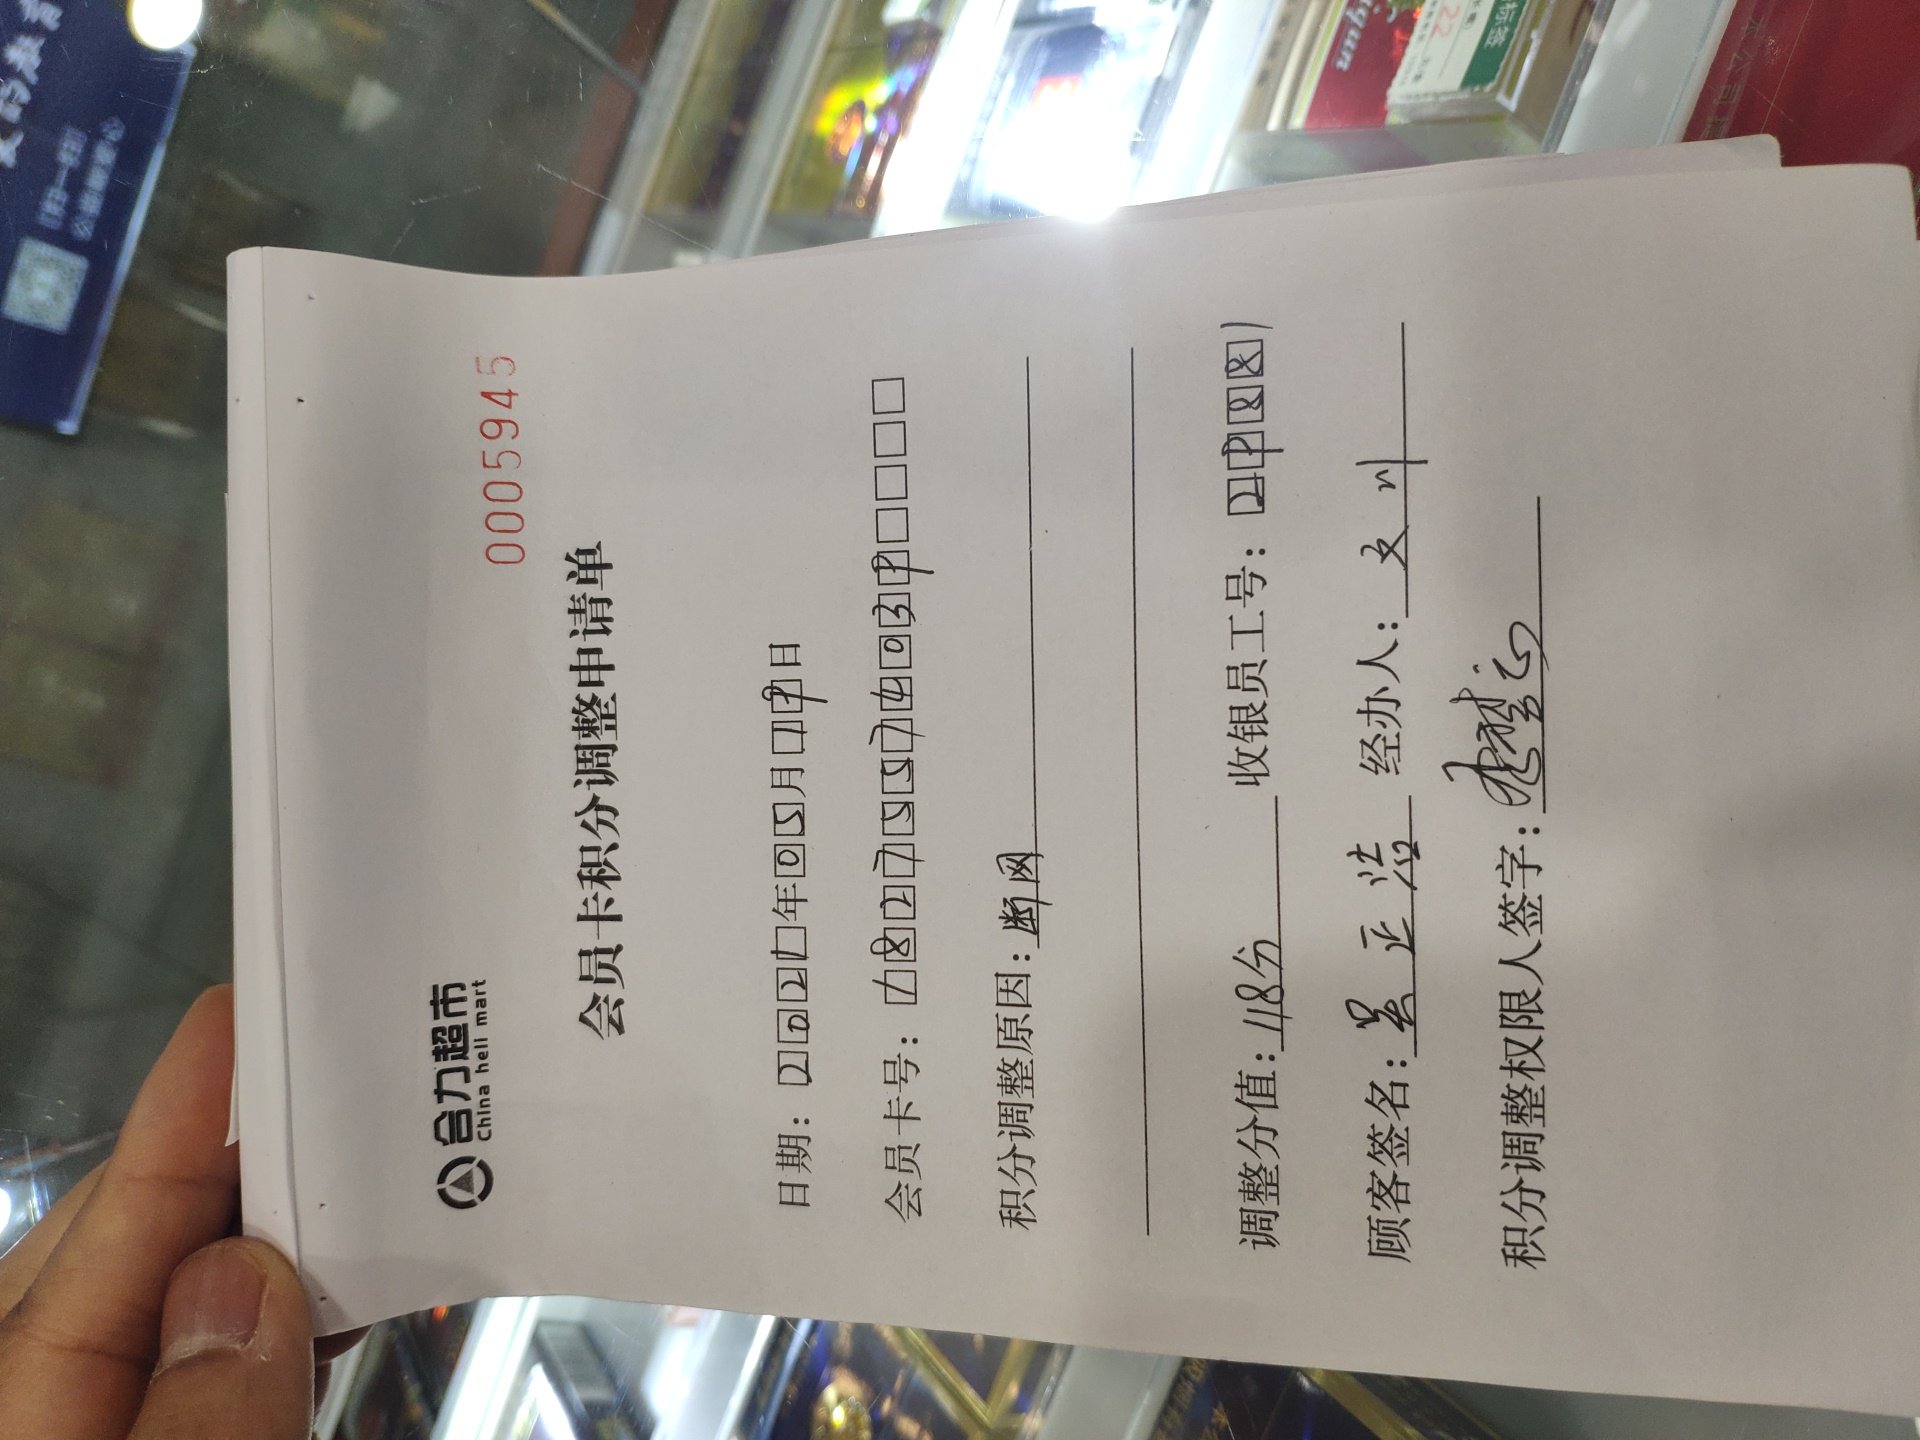 合力超市
China hell mart
0005945
会员卡积分调整申请单
日期：2021年05月19日
会员卡号：18275574039
积分调整原因：断网
调整分值：48分 收银员工号：29881
顾客签名：吴正浩 经办人：文川
积分调整权限人签字：
扫一扫
Sigun
22
标签
本公司